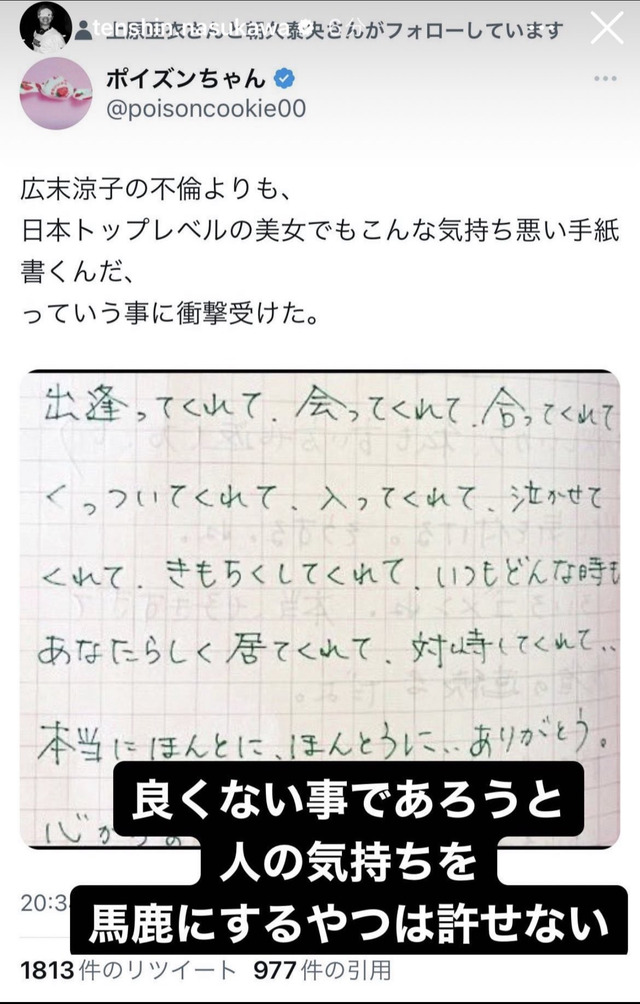 tenshin_nasukawa
さんがフォローしています
ポイズンちゃん
@poisoncookie00
広末涼子の不倫よりも、
日本トップレベルの美女でもこんな気持ち悪い手紙
書くんだ、
っていう事に衝撃受けた。
出逢ってくれて、会ってくれて、合ってくれて
くっついてくれて、入ってくれて、泣かせて
くれて、きもちくしてくれて、いつもどんな時も
あなたらしく居てくれて、対峙してくれて..
本当にほんとに、ほんとうに..ありがとう。
心から
良くない事であろうと
人の気持ちを
馬鹿にするやつは許せない
20:3
1813件のリツイート 977件の引用